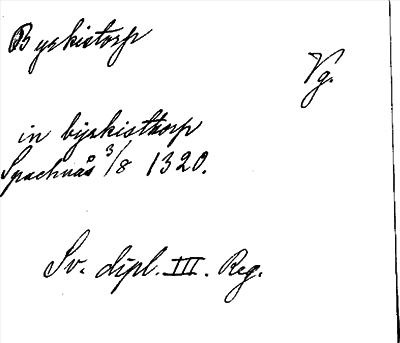 Byskistorp
Vg.
in byskisthorp
Spachnäs 3/8 1320.
Sv. dipl. III. Reg.